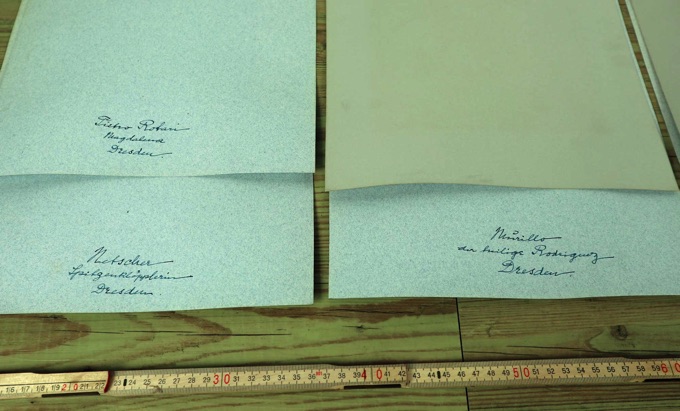 Pietro Rotari
Magdalena
Dresden
Netscher
Spitzenklöpplerin
Dresden.
Murillo
der heilige Rodriguez
Dresden.
16 17 18 19 20 21 22 23 24 25 26 27 28 29 30 31 32 33 34 35 36 37 38 39 40 41 42 43 44 45 46 47 48 49 50 51 52 53 54 55 56 57 58 59 60